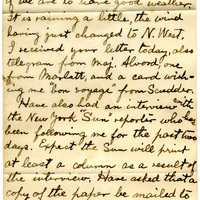 if we are to have good weather.
It is raining a little, the wind
having just changed to N. West.
I received your letter today, also
telegram from Maj. Alvord, one
from Marlatt, and a card wish-
ing me "bon voyage" from Scudder.
Have also had an interview with
the New York Sun reporter who has
been following me for the past two
days. Expect the Sun will print
at least a column as a result of
the interview. Have asked that a
copy of the paper be mailed to